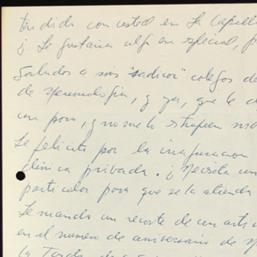 dida con usted en La Capilla
¿Le gustaría algo en especial, p
Saludos a sus "sádicos" colegas de
de Neumología, y ya, que le de
un poco, ¡y no me lo estropeen más
Le felicito por la inauguración
clínica privada. ¿Necesita un
particular para que se la atienda
Le mando un recorte de un artí
en el número de aniversario de
La Tarde